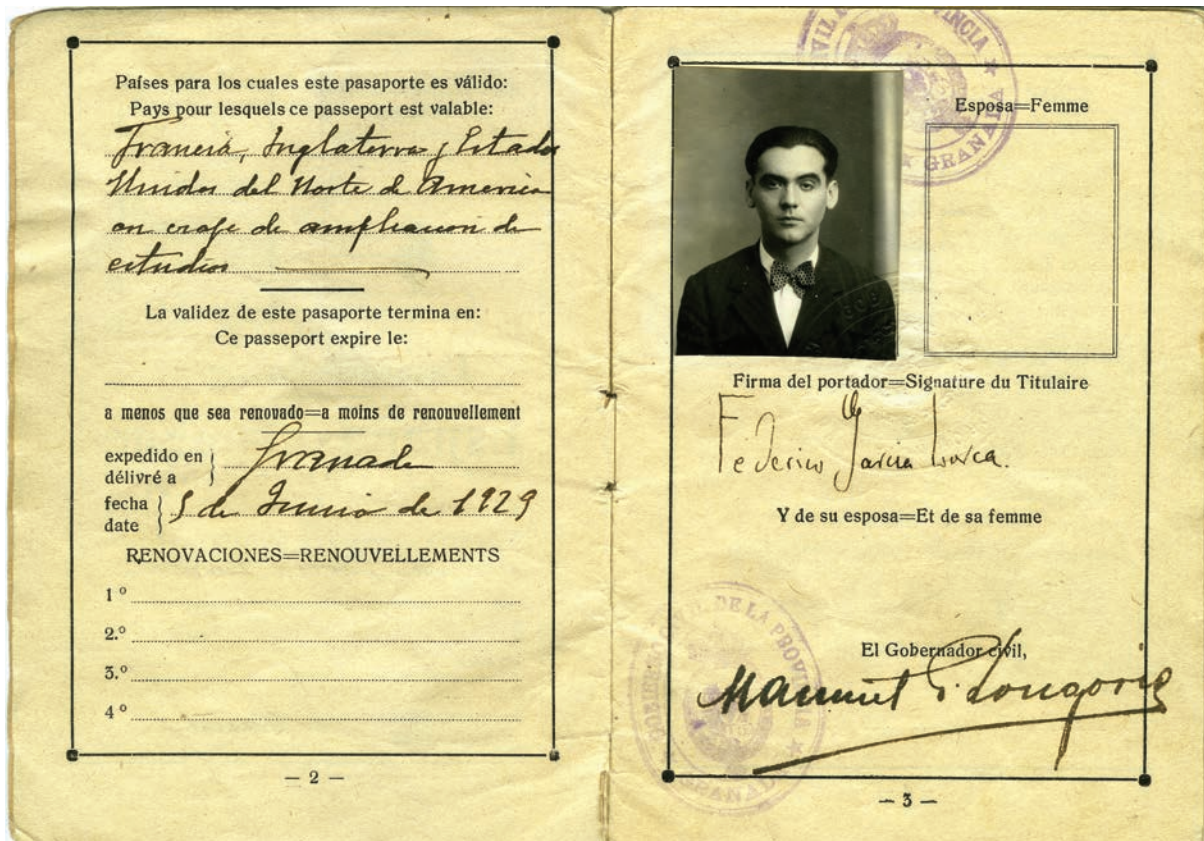 Países para los cuales este pasaporte es válido:
Pays pour lesquels ce passeport est valable:
Francia, Inglaterra y Estados
Unidos del Norte de America
en viaje de ampliacion de
estudios
La validez de este pasaporte termina en:
Ce passeport expire le:
a menos que sea renovado=a moins de renouvellement
expedido en
délivré a
Granada
fecha
date
5 de Junio de 1929
RENOVACIONES=RENOUVELLEMENTS
1º
2.º
3.º
4º
— 2 —
GRANADA
Esposa=Femme
Firma del portador=Signature du Titulaire
Federico García Lorca.
Y de su esposa=Et de sa femme
DE LA PROVINCIA
GRANADA
El Gobernador civil,
Manuel
— 3 —